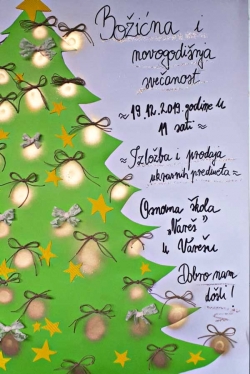 Božićna i
novogodišnja
svečanost
≈ 19.12.2019. godine u
11 sati ≈
≈ Izložba i prodaja
ukrasnih predmeta ≈
Osnovna škola
„Vareš”
u Varešu
Dobro nam
došli!